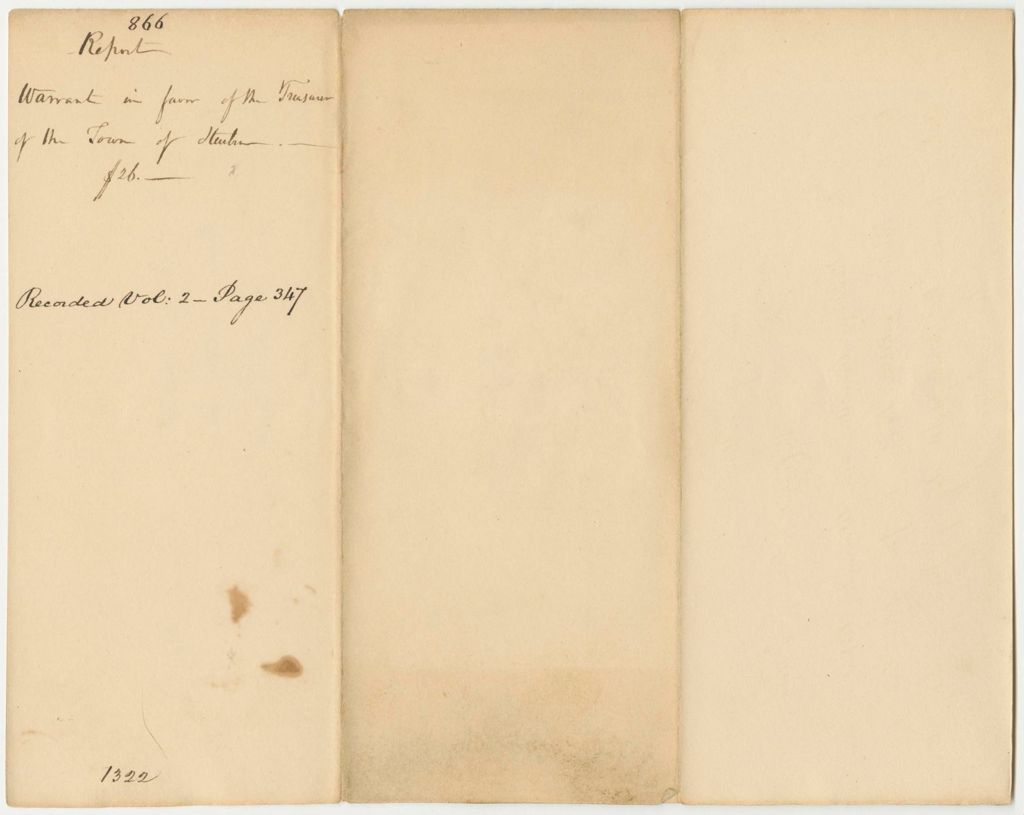 866
Report
Warrant in favor of the Treasurer
of the Town of Steuben. —
$26. —
Recorded Vol: 2 — Page 347
1322